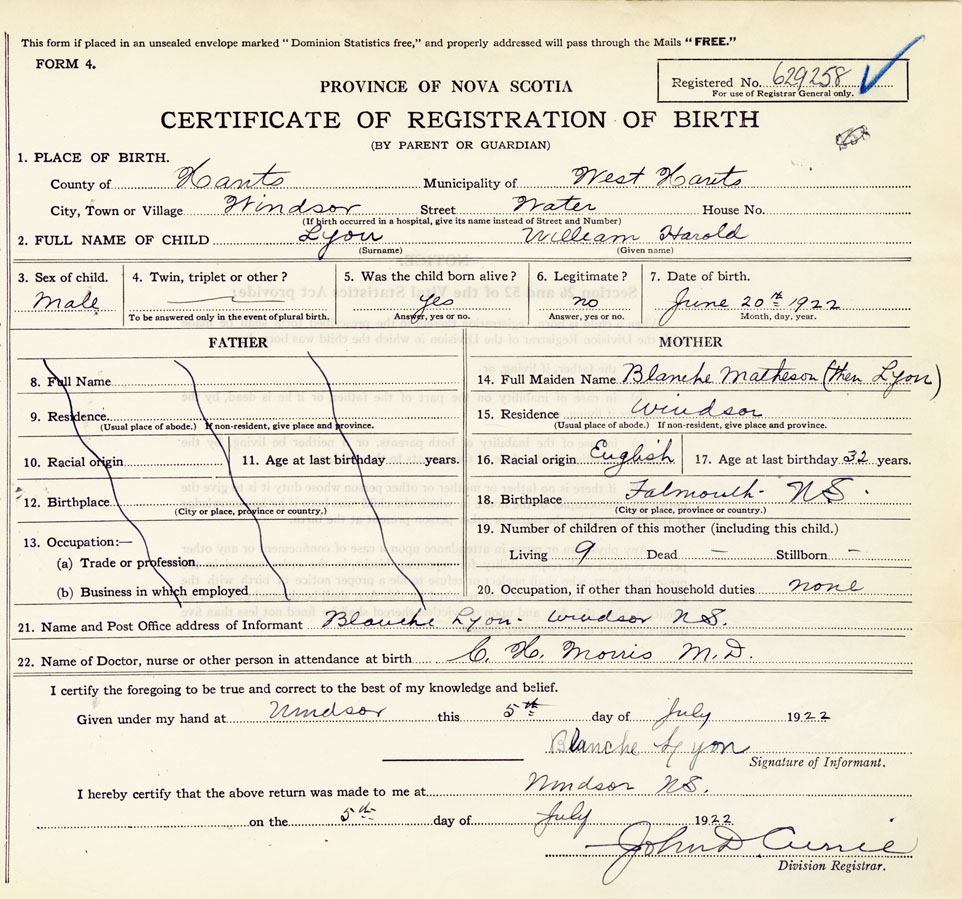 This form if placed in an unsealed envelope marked "Dominion Statistics free," and properly addressed will pass through the Mails "FREE."
FORM 4.
Registered No. 629258
For use of Registrar General only.
PROVINCE OF NOVA SCOTIA
CERTIFICATE OF REGISTRATION OF BIRTH
(BY PARENT OR GUARDIAN)
1. PLACE OF BIRTH.
County of Hants Municipality of West Hants
City, Town or Village Windsor Street Water House No.
(If birth occurred in a hospital, give its name instead of Street and Number)
2. FULL NAME OF CHILD Lyon William Harold
(Surname) (Given name)
3. Sex of child. 4. Twin, triplet or other? 5. Was the child born alive? 6. Legitimate? 7. Date of birth.
Male Yes no June 20th 1922
To be answered only in the event of plural birth. Answer, yes or no. Answer, yes or no. Month, day, year.
FATHER
8. Full Name
9. Residence
(Usual place of abode.) If non-resident, give place and province.
10. Racial origin 11. Age at last birthday years.
12. Birthplace
(City or place, province or country.)
13. Occupation:—
(a) Trade or profession
(b) Business in which employed
MOTHER
14. Full Maiden Name Blanche Matheson (then Lyon)
15. Residence Windsor
(Usual place of abode.) If non-resident, give place and province.
16. Racial origin English 17. Age at last birthday 32 years.
18. Birthplace Falmouth - NS.
(City or place, province or country.)
19. Number of children of this mother (including this child.)
Living 9 Dead — Stillborn —
20. Occupation, if other than household duties none
21. Name and Post Office address of Informant Blanche Lyon - Windsor NS.
22. Name of Doctor, nurse or other person in attendance at birth C. H. Morris M.D.
I certify the foregoing to be true and correct to the best of my knowledge and belief.
Given under my hand at Windsor this 5th day of July 1922
Blanche Lyon
Signature of Informant.
I hereby certify that the above return was made to me at Windsor NS.
on the 5th day of July 1922
John D Currie
Division Registrar.